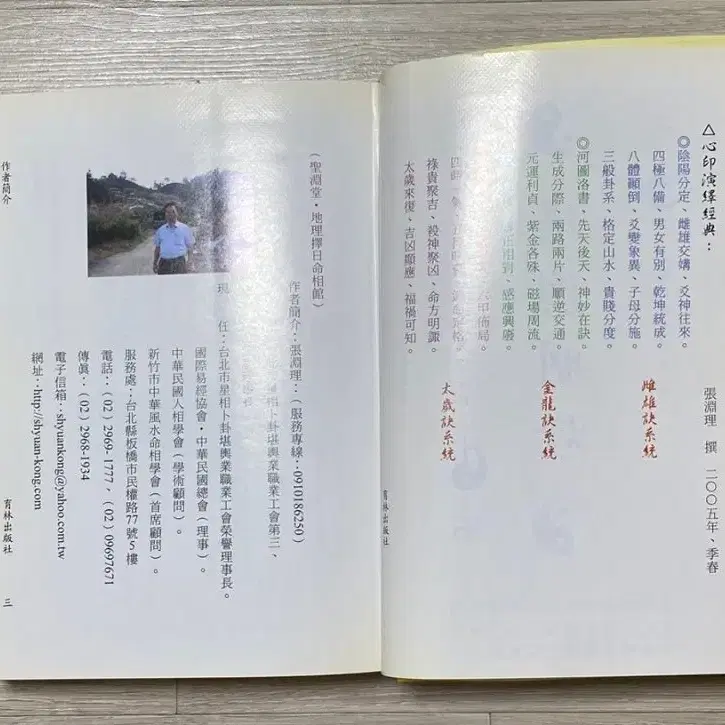 △心印演繹經典：
張淵理 撰 二〇〇五年、季春
◎陰陽分定、雌雄交媾、爻神往來。
四極八備、男女有別、乾坤統成。
八體顚倒、爻變象異、子母分施。
三般卦系、格定山水、貴賤分度。
雌雄訣系統
◎河圖洛書、先天後天、神妙在訣。
生成分際、兩路兩片、順逆交通。
元運利貞、紫金各殊、磁場周流。
感應興廢。
金龍訣系統
佈局。
祿貴聚吉、殺神聚凶、命方明諏。
太歲來復、吉凶顯應、福禍可知。
太歲訣系統
育林出版社
作者簡介
（聖淵堂·地理擇日命相館）
作者簡介：張淵理：（服務專線：0910186250）
卜卦堪輿業職業工會第三、
現 任：台北市星相卜卦堪輿業職業工會榮譽理事長。
國際易經協會·中華民國總會（理事）。
中華民國人相學會（學術顧問）。
新竹市中華風水命相學會（首席顧問）。
服務處：台北縣板橋市民權路77號5樓
電話：（02）2969-1777，（02）09697671
傳眞：（02）2968-1934
電子信箱：shyuankong@yahoo.com.tw
網址：http://shyuan-kong.com
育林出版社
三